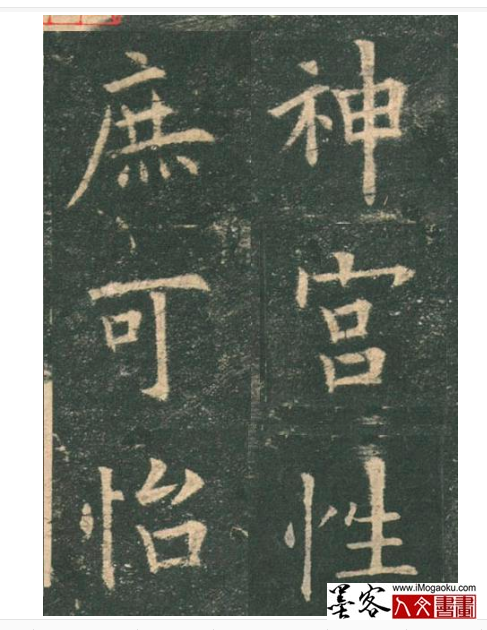 神宫性
庶可怡
墨客
www.iMogaoku.com
人文書畫